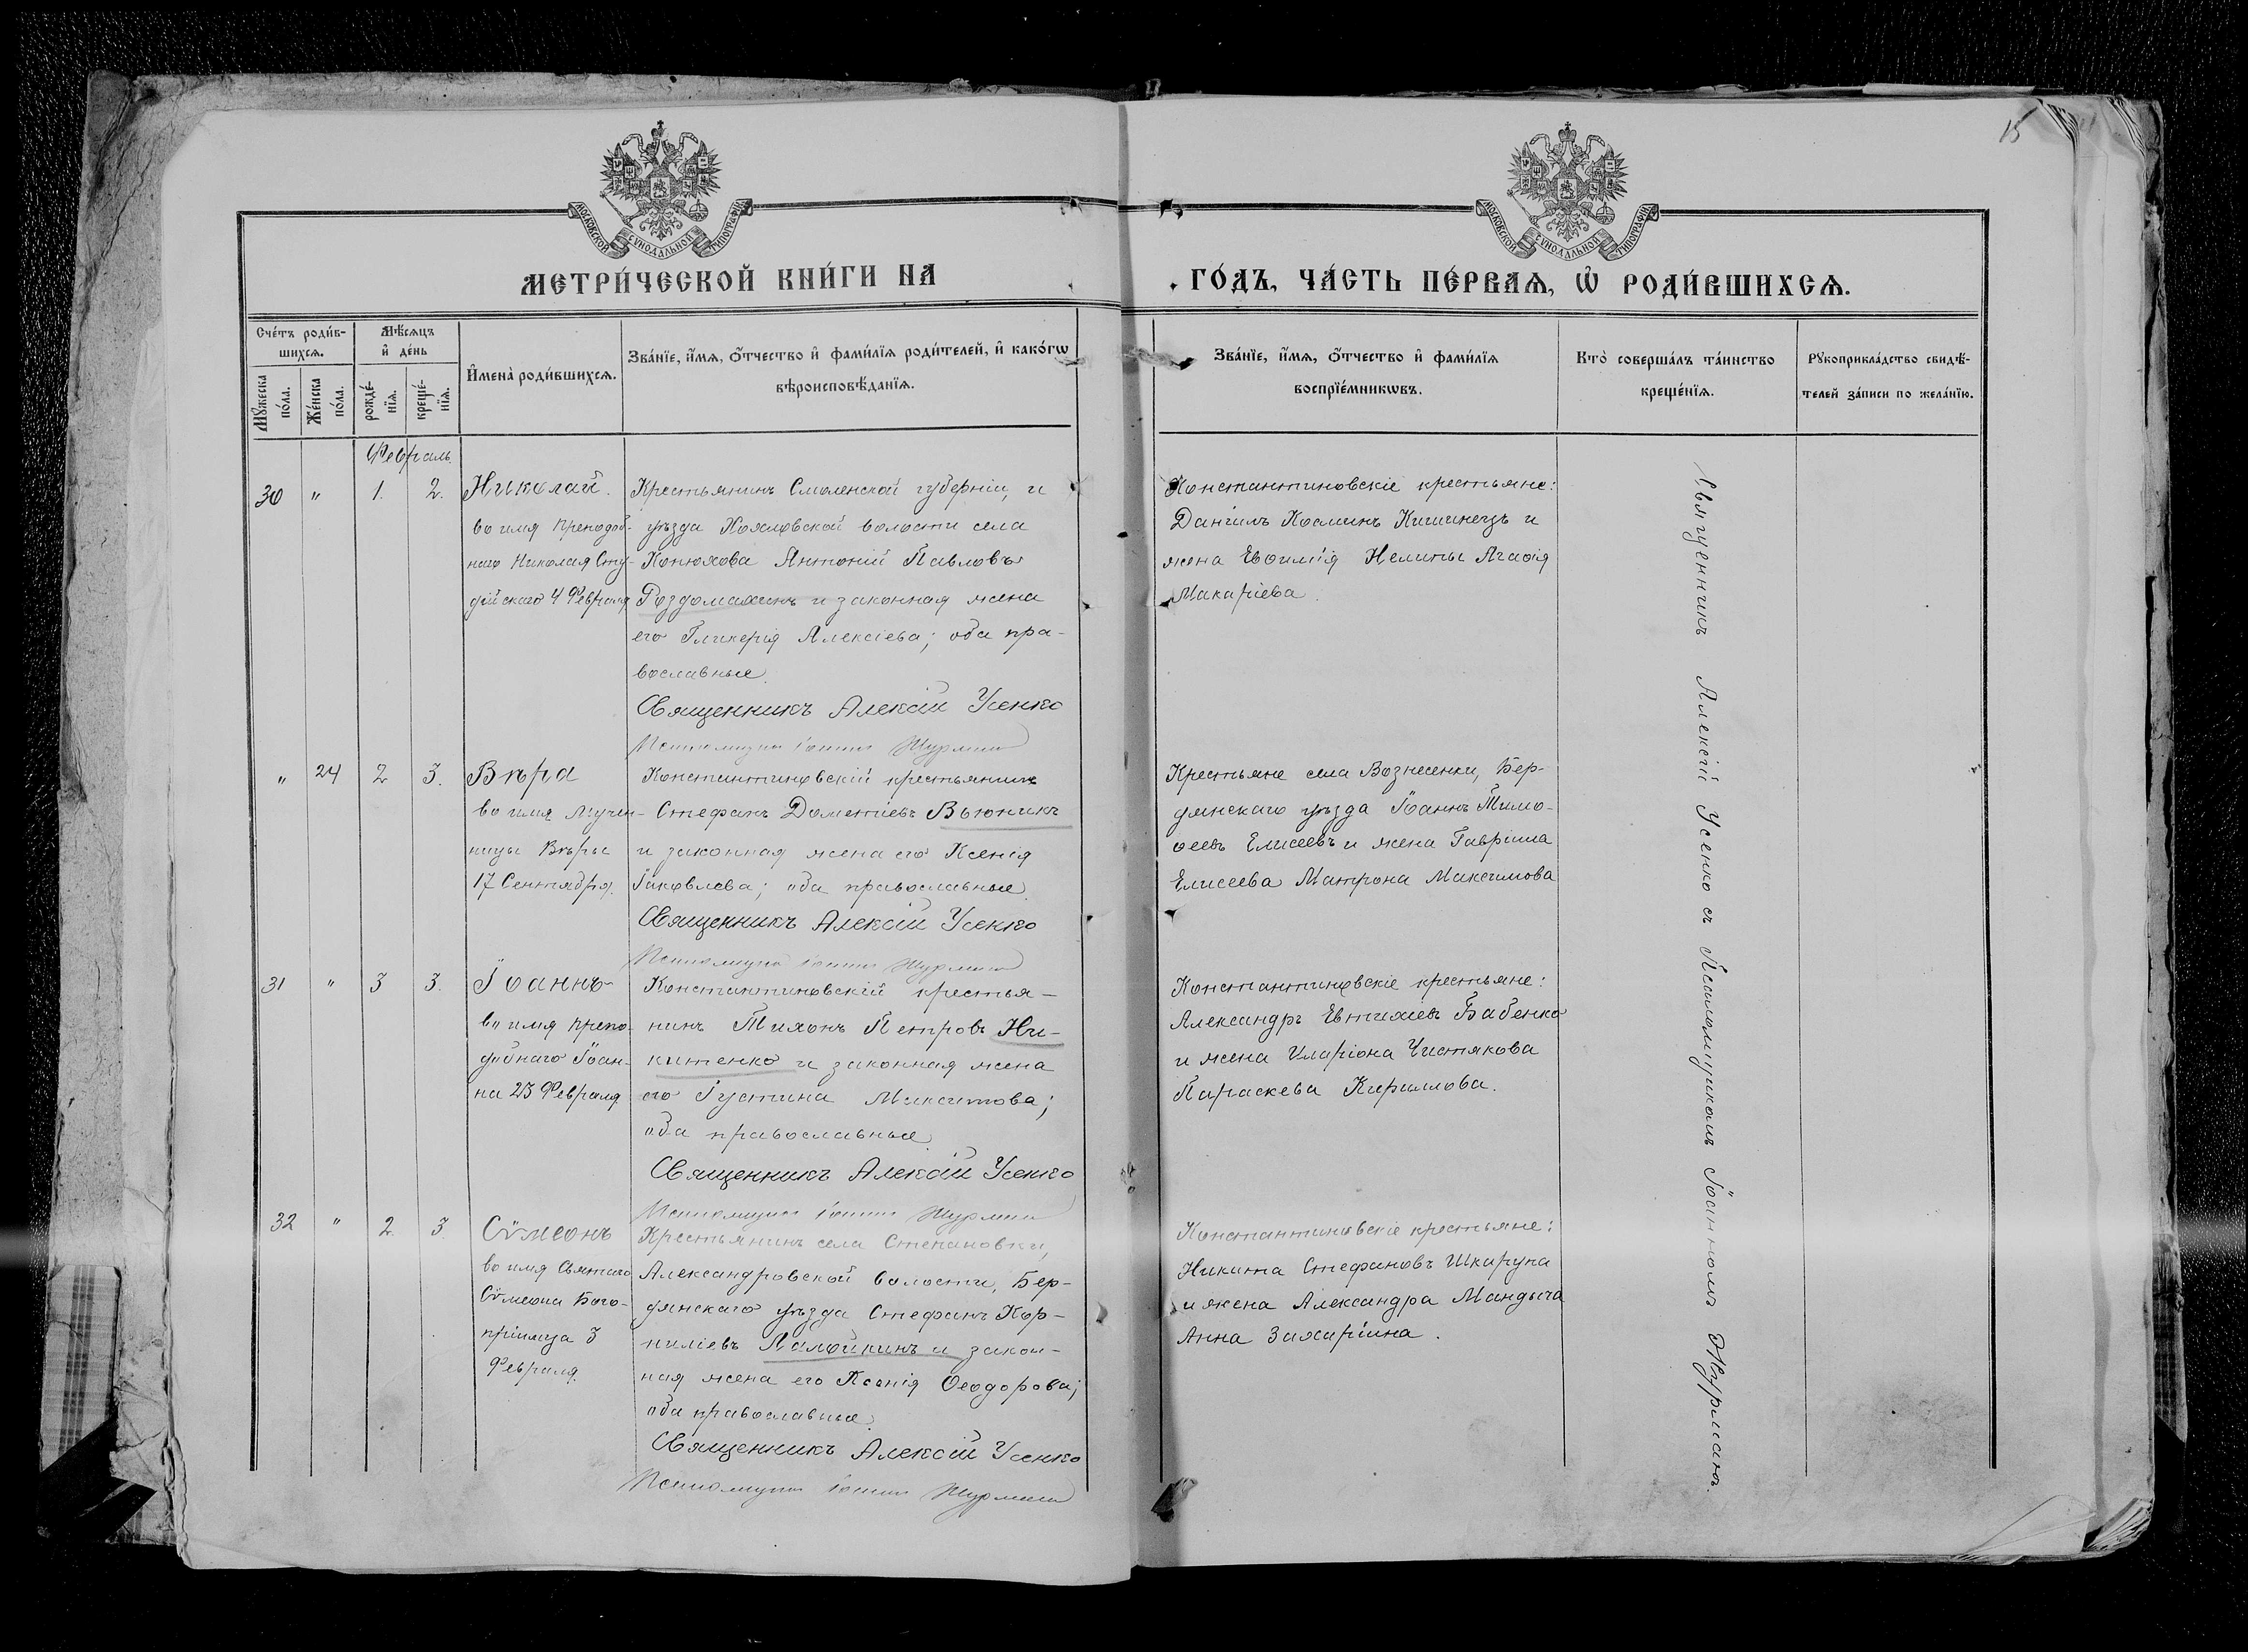 15
МОСКОВСКОЙ СѴНОДАЛЬНОЙ ТИПОГРАФІИ
МОСКОВСКОЙ СѴНОДАЛЬНОЙ ТИПОГРАФІИ
МЕТРИ́ЧЕСКОЙ КНИ́ГИ НА
ГО́ДЪ, ЧА́СТЬ ПЕ́РВАѦ, Ѡ҆ РОДИ́ВШИХСѦ.
Сче́тъ роди́в-
шихсѧ.
Мꙋ́жеска
по́ла.
Же́нска
по́ла.
Мѣ́сѧцъ
и҆ де́нь
рожде́-
нїѧ.
креще́-
нїѧ.
И҆мена̀ роди́вшихсѧ.
Зва́нїе, и҆́мѧ, ѻ҆́тчество и҆ фами́лїѧ роди́телей, и҆ како́гѡ
вѣроисповѣ́данїѧ.
Зва́нїе, и҆́мѧ, ѻ҆́тчество и҆ фами́лїѧ
воспрїе́мникѡвъ.
Кто̀ соверша́лъ та́инство
креще́нїѧ.
Рꙋкоприкла́дство свидѣ́-
телей за́писи по жела́нїю.
Февраль
30 " 1. 2.
Николай.
во имя Преподоб-
наго Николая Сту-
дійскаго 4 Февраля
Крестьянинъ Смоленской губерніи, и
уѣзда Хохловской волости села
Конюхова Антоній Павловъ
Роздомахинъ и законная жена
его Гликерія Алексіева; оба пра-
вославные.
Священникъ Алексій Усенко
Псаломщикъ Іоаннъ Журманъ
Константиновскіе крестьяне:
Даніилъ Косминъ Кишинецъ и
жена Евѳимія Нелипы Агаѳія
Макаріева.
" 24 2 3.
Вѣра
во имя Мучен-
ницы Вѣры
17 Сентября.
Константиновскій крестьянинъ
Стефанъ Дометіевъ Вьюникъ
и законная жена его Ксенія
Іаковлева; оба православные.
Священникъ Алексій Усенко
Псаломщикъ Іоаннъ Журманъ
Крестьяне села Вознесенки, Бер-
дянскаго уѣзда Іоаннъ Тимо-
ѳеевъ Елисеевъ и жена Гавріила
Елисеева Матрона Максимова
31 " 3 3.
Іоаннъ
во имя Препо-
добнаго Іоан-
на 23 Февраля
Константиновскій крестья-
нинъ Тихонъ Петровъ Ни-
китенко и законная жена
его Іустина Максимова;
оба православные
Священникъ Алексій Усенко
Псаломщикъ Іоаннъ Журманъ
Константиновскіе крестьяне:
Александръ Евтихіевъ Бабенко
и жена Иларіона Чистякова
Параскева Кириллова.
32 " 2. 3
Сѵмеонъ
во имя Святаго
Сѵмеона Бого-
пріимца 3
Февраля.
Крестьянинъ села Степановки,
Александровской волости, Бер-
дянскаго уѣзда Стефанъ Кор-
ниліевъ и закон-
ная жена его Ксенія Ѳеодорова;
оба православные.
Священникъ Алексій Усенко
Псаломщикъ Іоаннъ Журманъ
Константиновскіе крестьяне:
Никита Стефановъ Шкарупа
и жена Александра Мандыча
Анна Захаріина.
Священникъ Алексій Усенко съ Псаломщикомъ Іоанномъ Журманъ.